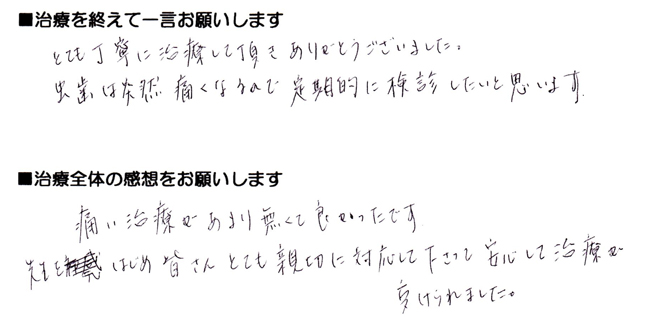 ■治療を終えて一言お願いします
とても丁寧に治療して頂きありがとうございました。
虫歯は突然痛くなるので定期的に検診したいと思います。
■治療全体の感想をお願いします
痛い治療があまり無くて良かったです
先生をはじめ皆さんとても親切に対応して下さって安心して治療が
受けられました。